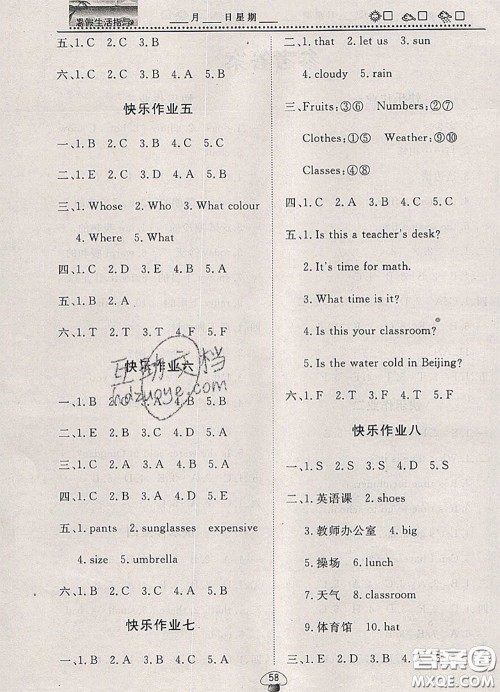 暑假生活指导
月 日星期
五、1.C 2.A 3.C 4.A 5.C
六、1.C 2.B 3.A 4.C 5.B
快乐作业五
一、1.B 2.B 3.B 4.C 5.A
二、1.E 2.C 3.D 4.A 5.B
三、1.Whose 2.Who 3.What colour
4.Where 5.What
四、1.C 2.D 3.E 4.A 5.B
五、1.B 2.A
六、1.T 2.T 3.T 4.F 5.F
快乐作业六
一、1.B 2.C 3.A 4.A 5.B
二、1.E 2.C 3.A 4.D 5.B
三、1.A 2.C 3.B 4.A 5.C
四、1.E 2.C 3.A 4.D 5.B
五、1.pants 2.sunglasses expensive
4.size 5.umbrella
六、1.B 2.C 3.A 4.C 5.B
快乐作业七
一、1.B 2.A 3.C 4.A 5.B
二、1.that 2.us 3.on
4.cloudy 5.rain
三、Fruits:③⑥ Numbers:②⑦
Clothes:①⑤ Weather:⑨⑩
Classes:④⑧
四、1.C 2.A 3.B 4.B 5.C
五、1.Is this a teacher's desk?
2.It's time for math.
3.What time is it?
4.Is this your classroom?
5.Is the water cold in Beijing?
六、1.F 2.T 3.F 4.F 5.T
快乐作业八
一、1.S 2.D 3.S 4.D 5.S
二、1.英语课 2.shoes
3.教师办公室 4.big
5.操场 6.lunch
7.天气 8.classroom
9.体育馆 10.hat
58
互助文档
hdzuoye.com
作业帮答案
MXQE.COM